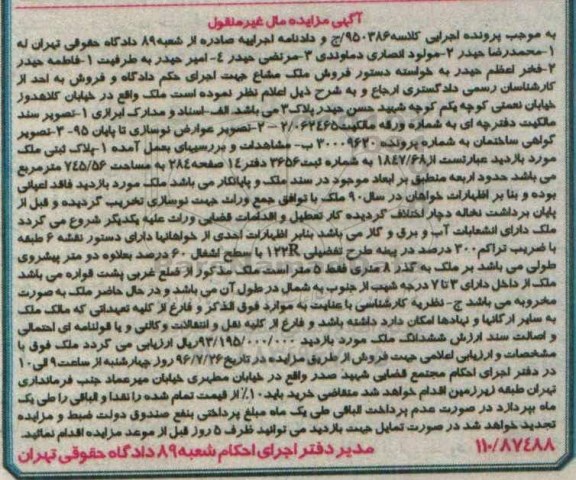 آگهی مزایده مال غیرمنقول
به موجب پرونده اجرایی کلاسه ۹۵۰۳۸۶/ج و دادنامه اجراییه صادره از شعبه ۸۹ دادگاه حقوقی تهران له
۱-محمدرضا حیدر ۲-مولود انصاری دماوندی ۳-مرتضی حیدر ۴- امیر حیدر به طرفیت ۱-فاطمه حیدر
۲-فخر اعظم حیدر به خواسته دستور فروش ملک مشاع جهت اجرای حکم دادگاه و فروش به احد از
کارشناسان رسمی دادگستری ارجاع و به شرح ذیل اعلام نظر نموده است ملک واقع در خیابان کلاهدوز
خیابان نعمتی کوچه یکم کوچه شهید حسن حیدر پلاک ۳ می باشد الف-اسناد و مدارک ابرازی ۱-تصویر سند
مالکیت دفترچه ای به شماره ورقه مالکیت ۲/۰۶۲۴۶۵ – ۲-تصویر عوارض نوسازی تا پایان ۹۵- ۳-تصویر
گواهی ساختمان به شماره پرونده ۳۰۰۰۹۶۲۰ ب- مشاهدات و بررسیهای بعمل آمده ۱-پلاک ثبتی ملک
مورد بازدید عبارتست از ۱۸۴۷/۶۸ به شماره ثبت ۳۶۵۶ دفتر ۱۴ صفحه ۲۸۴ به مساحت ۷۴۵/۵۶ مترمربع
می باشد حدود اربعه منطبق بر ابعاد موجود در سند ملک و پایانکار می باشد ملک مورد بازدید فاقد اعیانی
بوده و بنا بر اظهارات خواهان در سال ۹۰ ملک با توافق جمع وراث جهت نوسازی تخریب گردیده و قبل از
پایان برداشت نخاله دچار اختلاف گردیده کار تعطیل و اقدامات قضایی وراث علیه یکدیگر شروع می گردد
ملک دارای انشعابات آب و برق و گاز می باشد بنابر اظهارات احدی از خواهانها دارای دستور نقشه ۶ طبقه
با ضریب تراکم ۳۰۰ درصد در پهنه طرح تفضیلی R۱۲۲ با سطح اشغال ۶۰ درصد بعلاوه دو متر پیشروی
طولی می باشد بر ملک به گذر ۸ متری فقط ۵ متر است ملک مذکور از ضلع غربی پشت قواره می باشد
ملک از داخل دارای ۳ تا ۷ درجه شیب از جنوب به شمال در طول آن می باشد و در حال حاضر ملک به صورت
مخروبه می باشد ج- نظریه کارشناسی با عنایت به موارد فوق الذکر و فارغ از کلیه تعهداتی که مالک ملک
به سایر ارگانها و نهادها امکان دارد داشته باشد و فارغ از کلیه نقل و انتقالات وکالتی و یا قولنامه ای احتمالی
و اصالت سند ارزش ششدانگ ملک مورد بازدید ۹۳/۱۹۵/۰۰۰/۰۰۰ ریال ارزیابی می گردد ملک فوق با
مشخصات و ارزیابی اعلامی جهت فروش از طریق مزایده در تاریخ ۹۶/۷/۲۶ روز چهارشنبه از ساعت ۹ الی ۱۰
در دفتر اجرای احکام مجتمع قضایی شهید صدر واقع در خیابان مطهری خیابان میرعماد جنب فرمانداری
تهران طبقه زیرزمین اقدام خواهد شد متقاضی خرید باید ۱۰٪ از قیمت تمام شده را نقدا و الباقی را طی یک
ماه بپردازد در صورت عدم پرداخت الباقی طی یک ماه مبلغ پرداختی بنفع صندوق دولت ضبط و مزایده
تجدید خواهد شد در صورت تمایل جهت بازدید می توانید ظرف ۵ روز قبل از موعد مزایده اقدام نمائید.
۱۱۰/۸۷۴۸۸ مدیر دفتر اجرای احکام شعبه ۸۹ دادگاه حقوقی تهران